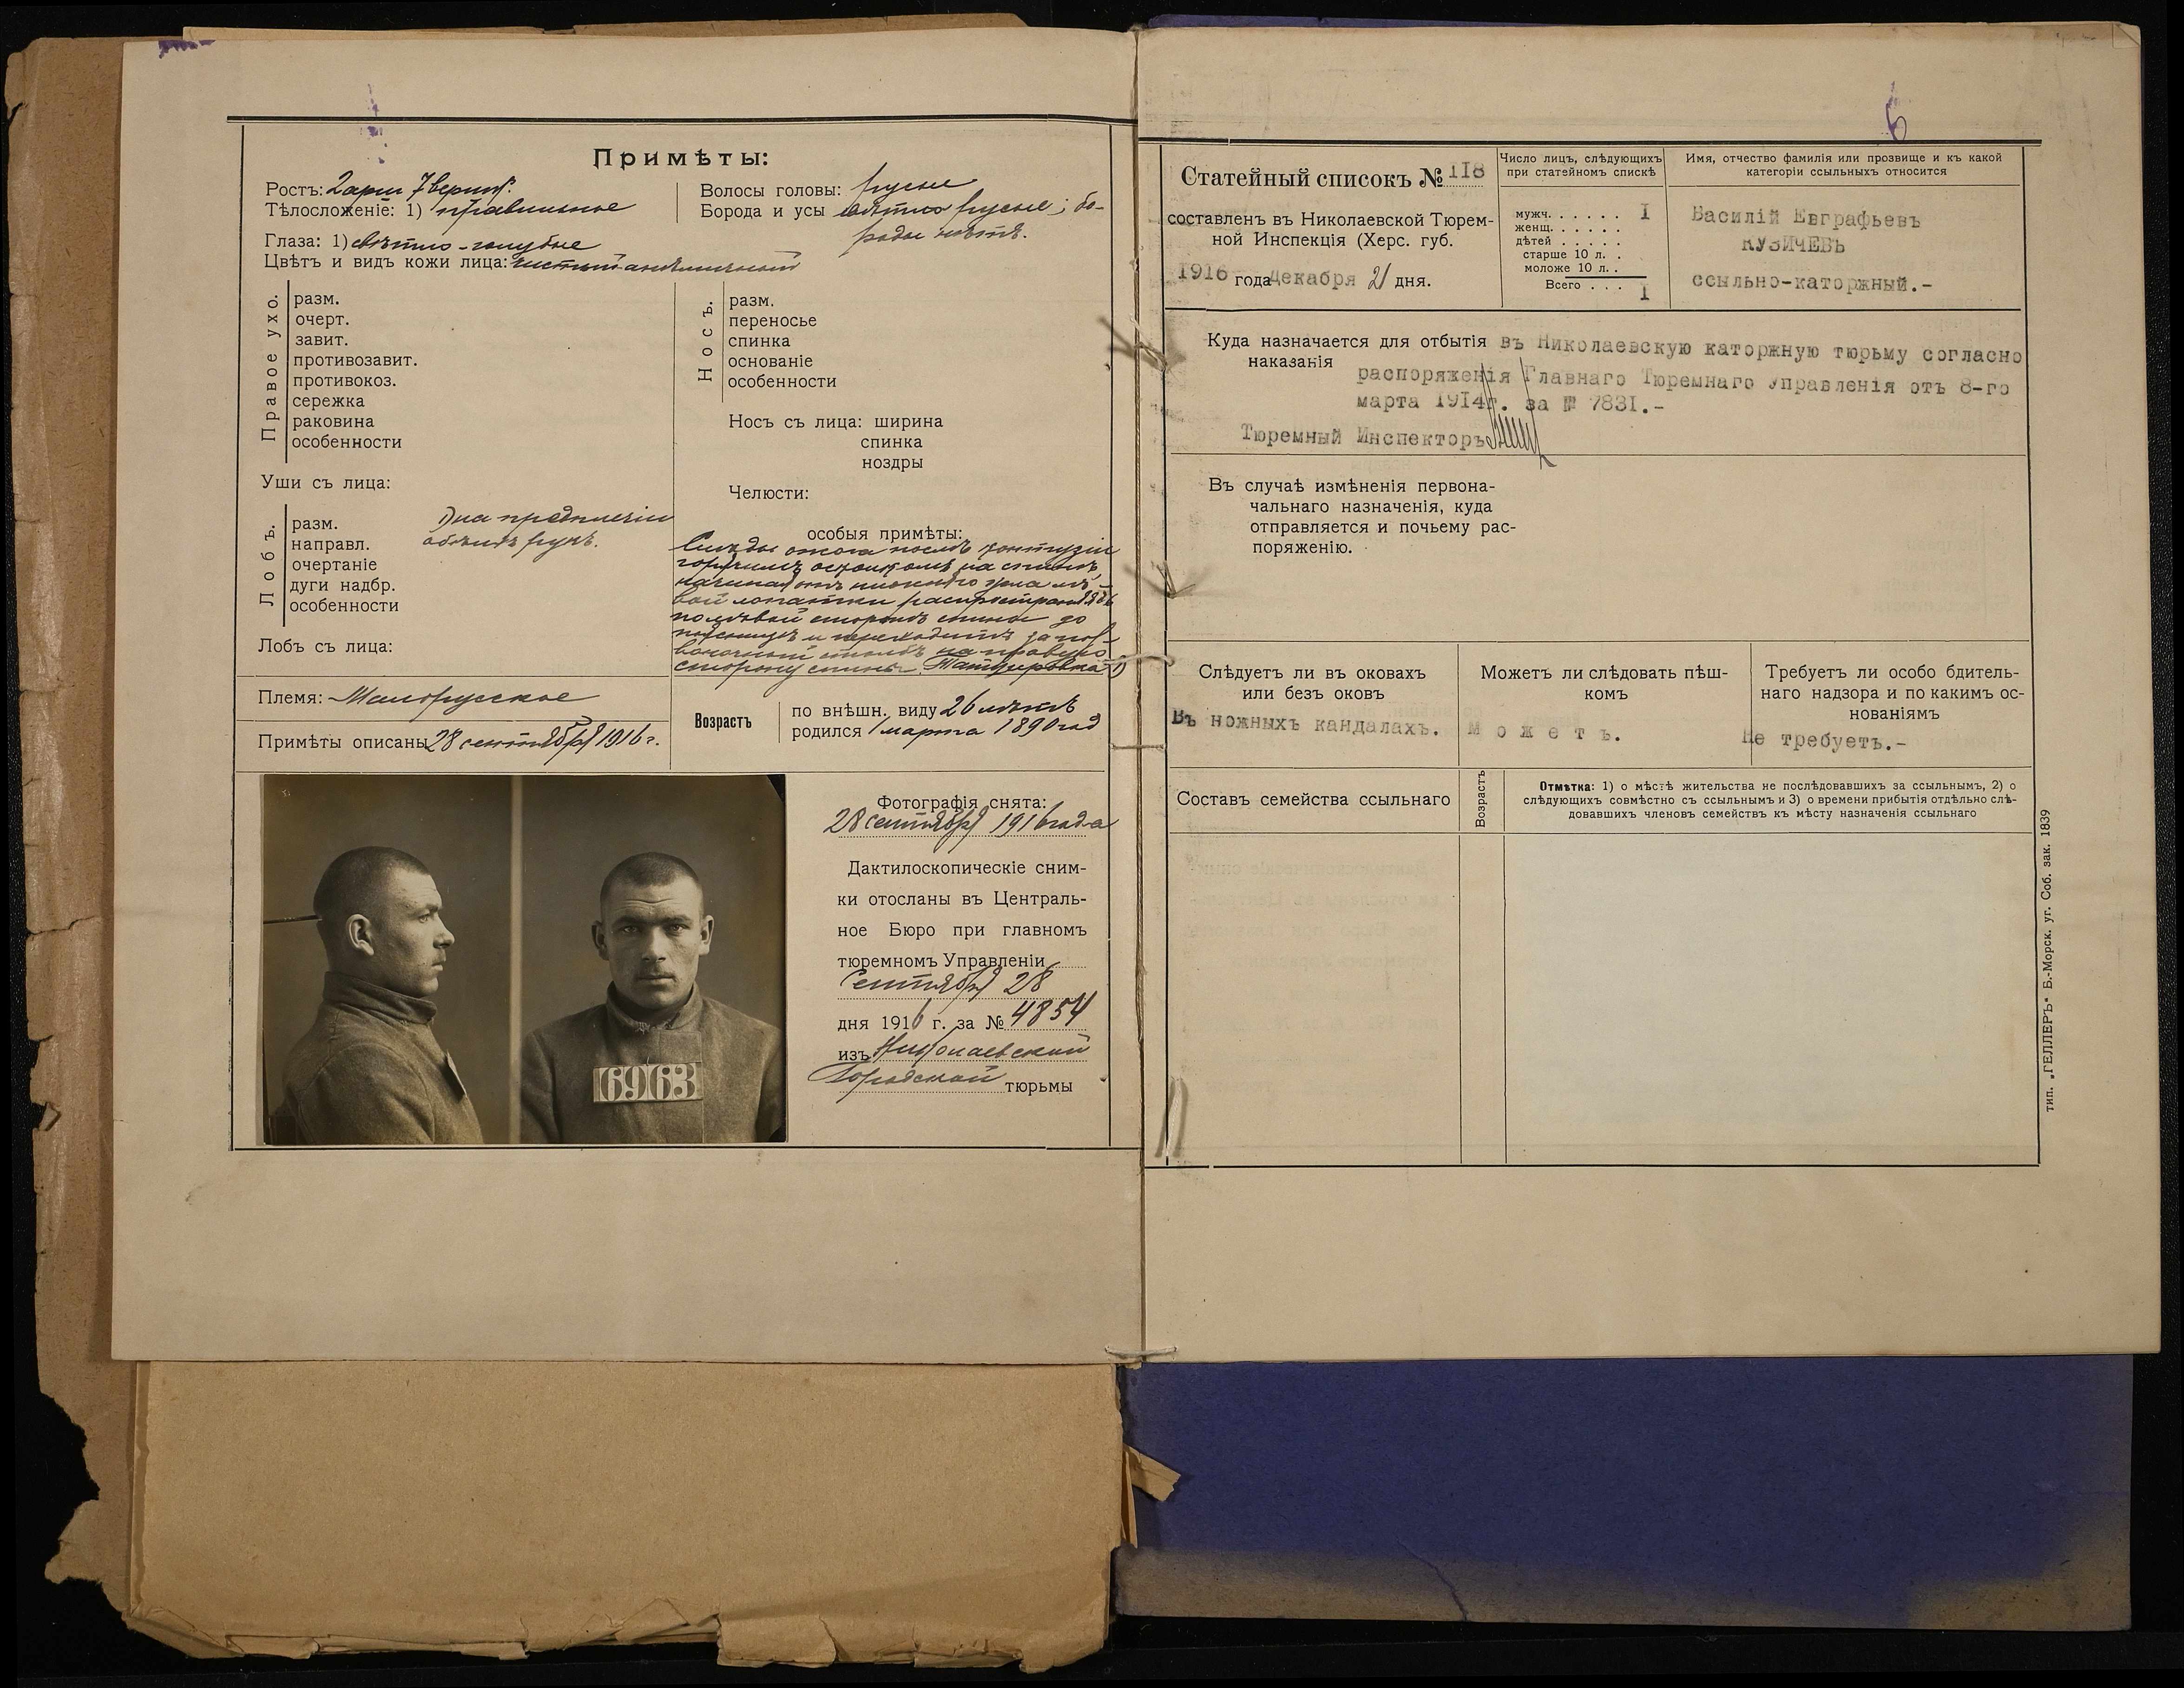 Примѣты:
Ростъ: 2 арш 7 верш.
Тѣлосложеніе: 1) правильное
Глаза: 1) свѣтло-голубые
Цвѣтъ и видъ кожи лица: чистый
Волосы головы: русые
Борода и усы свѣтло русые; бо-
роды нѣтъ.
Правое ухо.
разм.
очерт.
завит.
противозавит.
противокоз.
сережка
раковина
особенности
Носъ.
разм.
переносье
спинка
основаніе
особенности
Носъ съ лица: ширина
спинка
ноздры
Уши съ лица:
Челюсти:
Лобъ.
разм.
направл.
очертаніе
дуги надбр.
особенности
1) на предплечіи
обѣихъ рукъ.
Лобъ съ лица:
особыя примѣты:
Слѣды ожога послѣ контузіи
горячимъ осколкомъ на спинѣ,
начиная отъ нижняго угла лѣ-
вой лопатки распространяясь
по лѣвой сторонѣ спины до
поясницы и переходитъ за поз-
воночный столбъ на правую
сторону спины. Татуировка 1)
Племя: Малорусское
Примѣты описаны 28 сентября 1916 г.
Возрастъ
по внѣшн. виду 26 лѣтъ
родился 1 марта 1890 год
Фотографія снята:
28 сентября 1916 года
Дактилоскопическіе сним-
ки отосланы въ Централь-
ное Бюро при главномъ
тюремномъ Управленіи
Сентября 28
дня 1916 г. за № 4854
изъ Николаевской
Городской тюрьмы
6963
6
Статейный списокъ № 118
составленъ въ Николаевской Тюрем-
ной Инспекція (Херс. губ.
1916 года декабря 21 дня.
Число лицъ, слѣдующихъ
при статейномъ спискѣ
мужч. . . . . . . 1
женщ. . . . . . .
дѣтей . . . . .
старше 10 л. . .
моложе 10 л. . .
Всего . . . 1
Имя, отчество фамилія или прозвище и къ какой
категоріи ссыльныхъ относится
Василій Евграфьевъ
КУЗИЧЕВЪ
ссыльно-каторжный.-
Куда назначается для отбытія въ Николаевскую каторжную тюрьму согласно
наказанія
распоряженія Главнаго Тюремнаго Управленія отъ 8-го
марта 1914г. за № 7831.-
Тюремный Инспекторъ
Въ случаѣ измѣненія первона-
чальнаго назначенія, куда
отправляется и почьему рас-
поряженію.
Слѣдуетъ ли въ оковахъ
или безъ оковъ
Въ ножныхъ кандалахъ.
Можетъ ли слѣдовать пѣш-
комъ
Можетъ.
Требуетъ ли особо бдитель-
наго надзора и по какимъ ос-
нованіямъ
Не требуетъ.-
Составъ семейства ссыльнаго
Возрастъ
Отмѣтка: 1) о мѣстѣ жительства не послѣдовавшихъ за ссыльнымъ, 2) о
слѣдующихъ совмѣстно съ ссыльнымъ и 3) о времени прибытія отдѣльно слѣ-
довавшихъ членовъ семействъ къ мѣсту назначенія ссыльнаго
тип. „ГЕЛЛЕРЪ" Б.-Морск. уг. Соб. зак. 1839